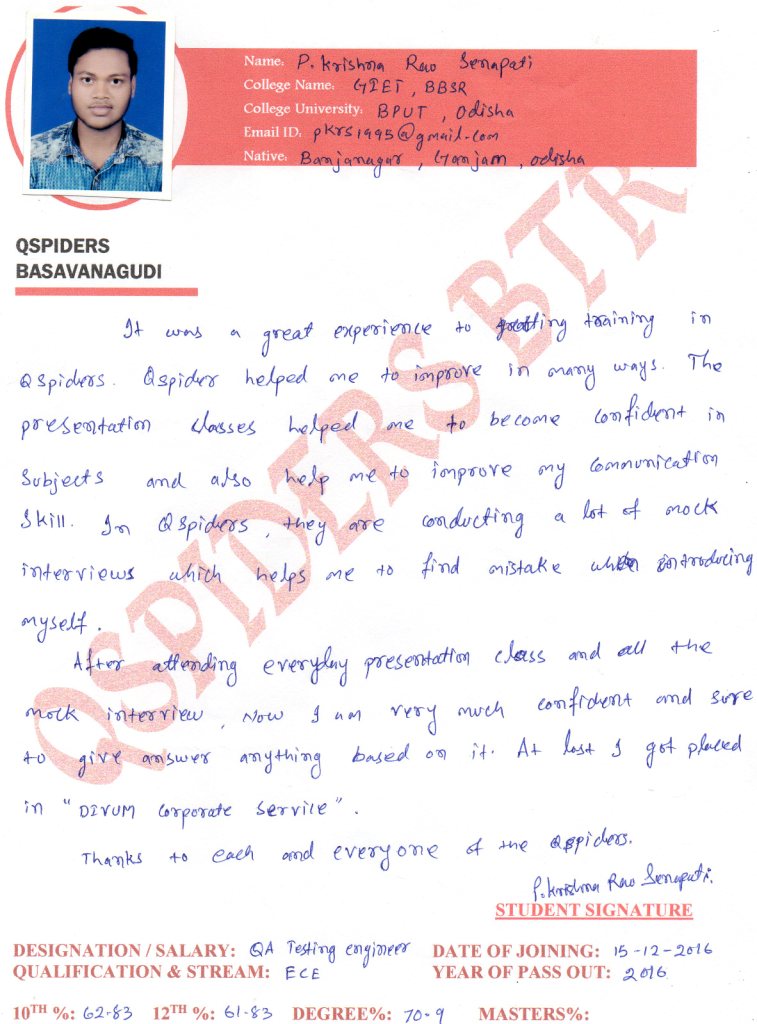 Name: P. Krishna Rao Senapati
College Name: GIET, BBSR
College University: BPUT, Odisha
Email ID: pkrs1995@gmail.com
Native: Banjanagar, Ganjam, odisha
QSPIDERS
BASAVANAGUDI
QSPIDERS BTR
It was a great experience to getting training in
Qspiders. Qspider helped me to improve in many ways. The
presentation classes helped me to become confident in
Subjects and also help me to improve my communication
Skill. In Qspiders, they are conducting a lot of mock
interviews which helps me to find mistake when introducing
myself.
After attending everyday presentation class and all the
mock interview, Now I am very much confident and sure
to give answer anything based on it. At last I got placed
in "DIVUM Corporate Service".
Thanks to each and everyone of the Qspiders.
P. Krishna Rao Senapati.
STUDENT SIGNATURE
DESIGNATION / SALARY: QA Testing engineer DATE OF JOINING: 15-12-2016
QUALIFICATION & STREAM: ECE YEAR OF PASS OUT: 2016
10TH %: 62-83 12TH %: 61-83 DEGREE%: 70-9 MASTERS%: